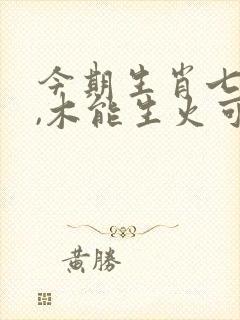 今期生肖七
,木能生火可
黄勝